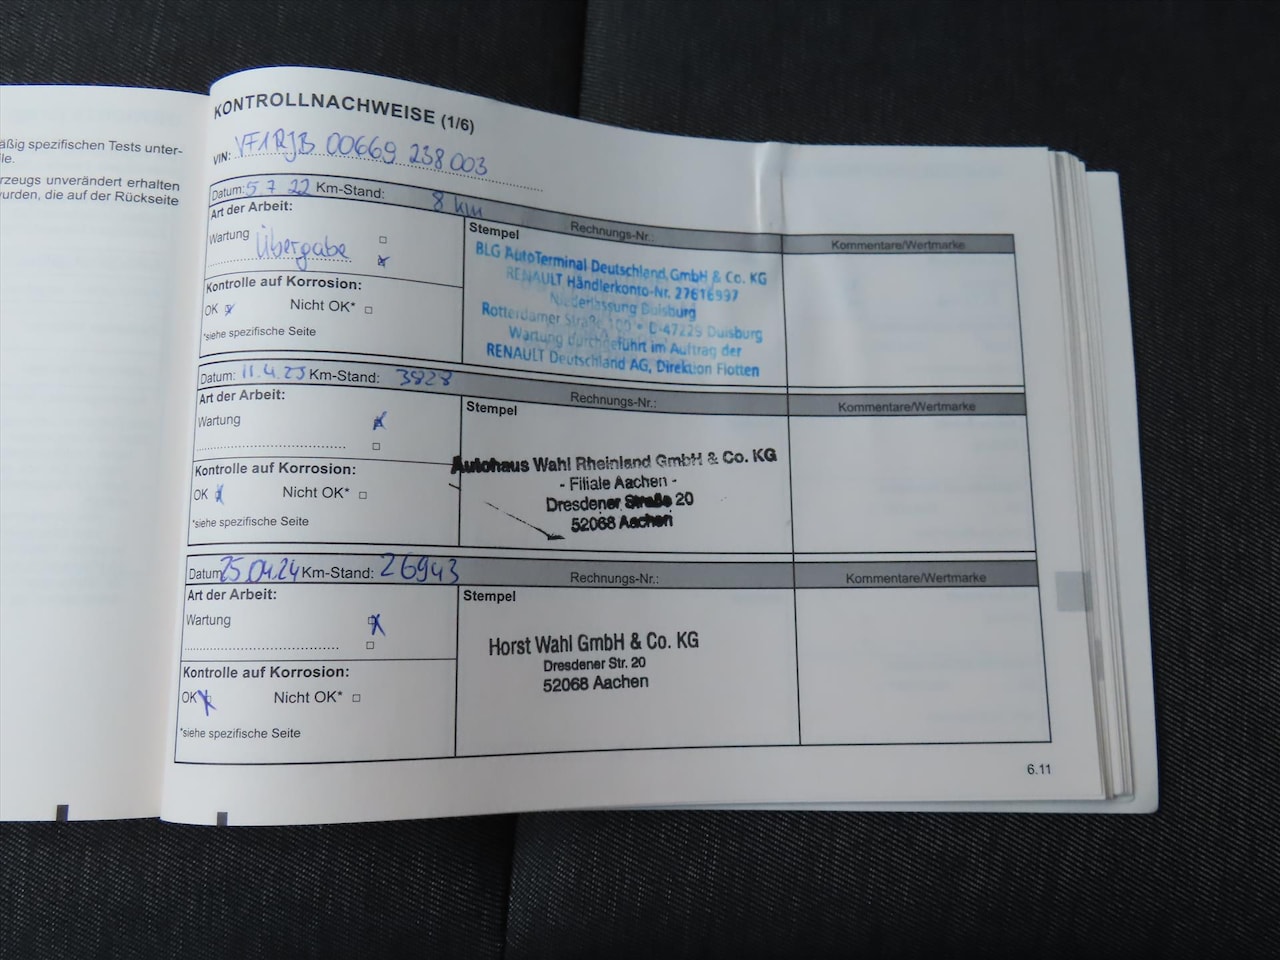 äßig spezifischen Tests unter-
ile.
rzeugs unverändert erhalten
wurden, die auf der Rückseite
KONTROLLNACHWEISE (1/6)
VIN: VF1RJB 00669 238 003
Datum: 5 7 22 Km-Stand: 8 km
Rechnungs-Nr.:
Kommentare/Wertmarke
Art der Arbeit:
Wartung
Übergabe
Kontrolle auf Korrosion:
OK Nicht OK*
*siehe spezifische Seite
Stempel
BLG AutoTerminal Deutschland GmbH & Co. KG
RENAULT Händlerkonto-Nr. 27616997
Niederlassung Duisburg
Rotterdamer Straße 100 • D-47229 Duisburg
Wartung durchgeführt im Auftrag der
RENAULT Deutschland AG, Direktion Flotten
Datum: 11.4.23 Km-Stand: 3828
Rechnungs-Nr.:
Kommentare/Wertmarke
Art der Arbeit:
Wartung
Kontrolle auf Korrosion:
OK Nicht OK*
*siehe spezifische Seite
Stempel
Autohaus Wahl Rheinland GmbH & Co. KG
- Filiale Aachen -
Dresdener Straße 20
52068 Aachen
Datum 25.04.24 Km-Stand: 26943
Rechnungs-Nr.:
Kommentare/Wertmarke
Art der Arbeit:
Wartung
Kontrolle auf Korrosion:
OK Nicht OK*
*siehe spezifische Seite
Stempel
Horst Wahl GmbH & Co. KG
Dresdener Str. 20
52068 Aachen
6.11